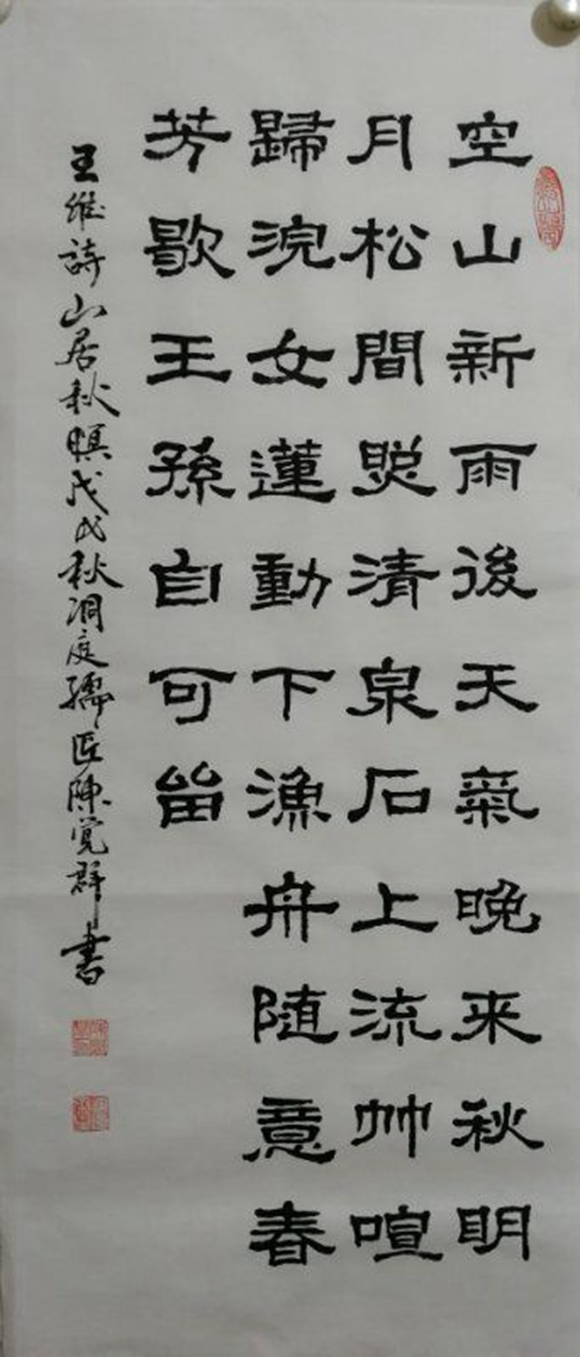 空山新雨後天氣晚来秋明
月松間照清泉石上流竹喧
歸浣女蓮動下漁舟随意春
芳歇王孫自可留
王維詩山居秋暝戊戌秋洞庭孺匠陳覚群書